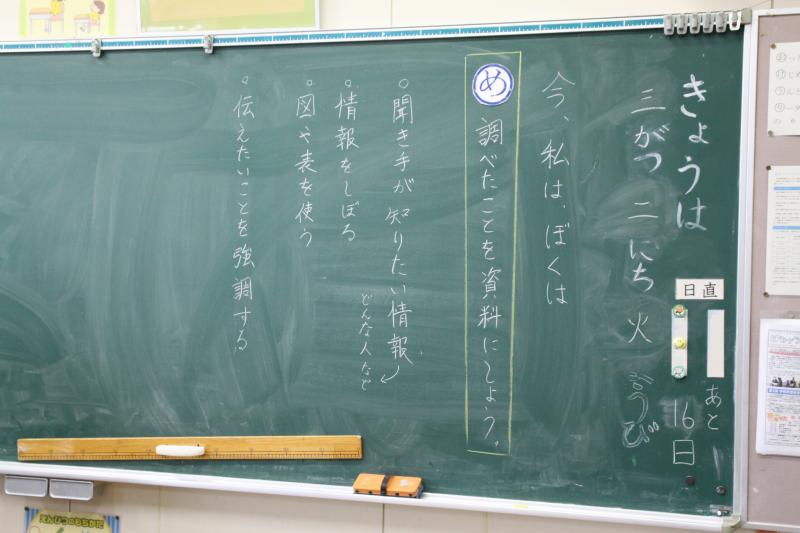 きょうは
三がつ 二にち 火ようび
日直
あと
16日
今、私は、ぼくは
め 調べたことを資料にしよう。
○聞き手が知りたい情報
どんな人など
○情報をしぼる
○図や表を使う
○伝えたいことを強調する
えんぴつのもちかた